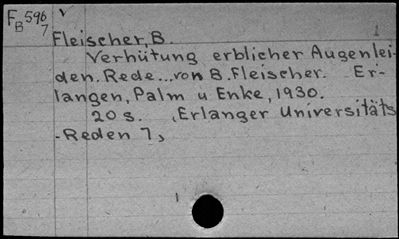 F 596
B 7
Fleischer, B. 1
Verhütung erblicher Augenlei-
den. Rede...von B. Fleischer. Er-
langen, Palm u Enke, 1930.
20 s. (Erlanger Universitäts
-Reden 7)